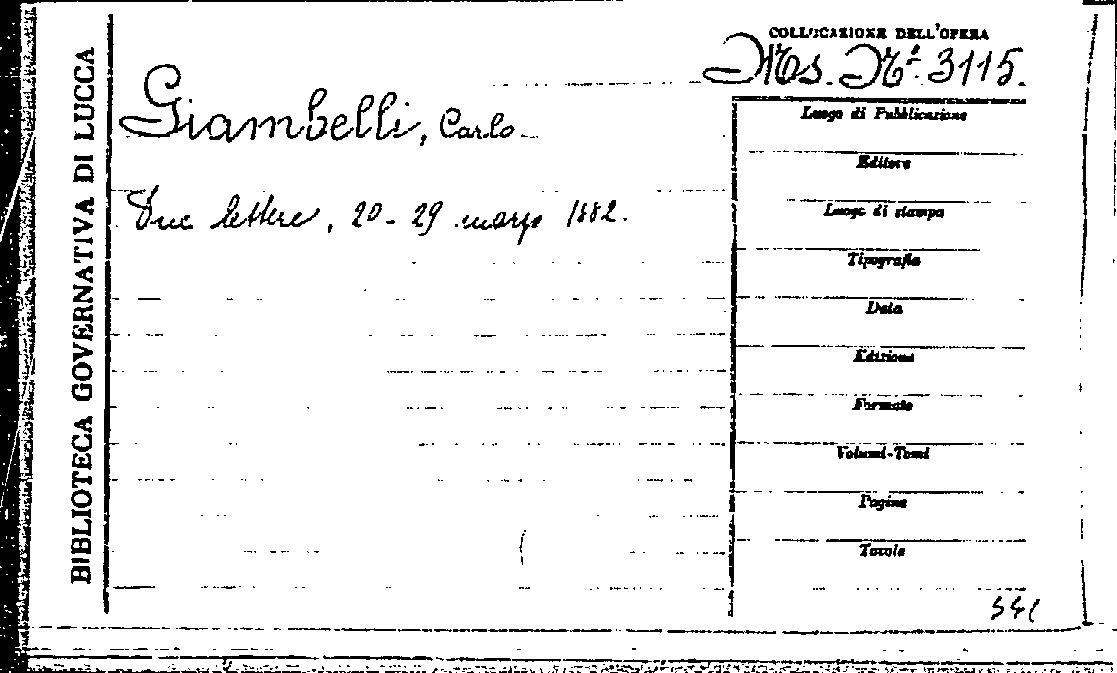 BIBLIOTECA GOVERNATIVA DI LUCCA
COLLOCAZIONE DELL'OPERA
Ms. N.º 3115.
Giambelli, Carlo
Due lettere, 20-29 marzo 1882.
Luogo di Pubblicazione
Editore
Luogo di stampa
Tipografia
Data
Edizione
Formato
Volumi-Tomi
Pagine
Tavole